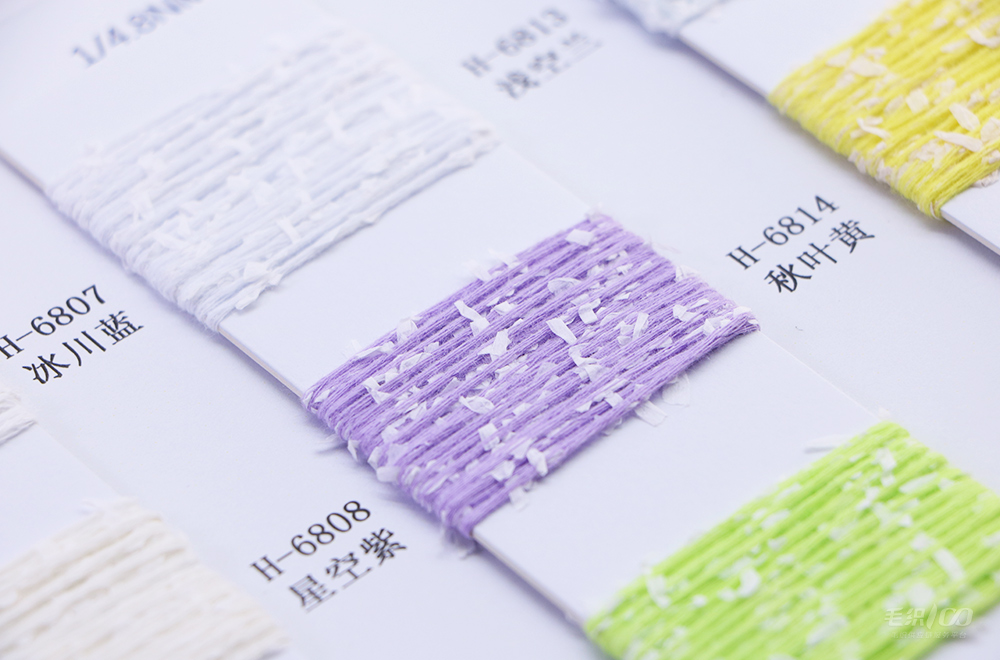 1/4.8N
H-6813
浅空兰
H-6814
秋叶黄
H-6807
冰川蓝
H-6808
星空紫
毛织